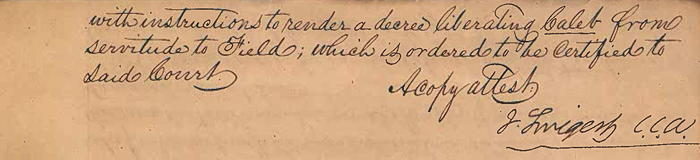 with instructions to render a decree liberating Caleb from
servitude to Field; which is ordered to be certified to
said Court
A copy attest.
J. Swigert C.C.A.